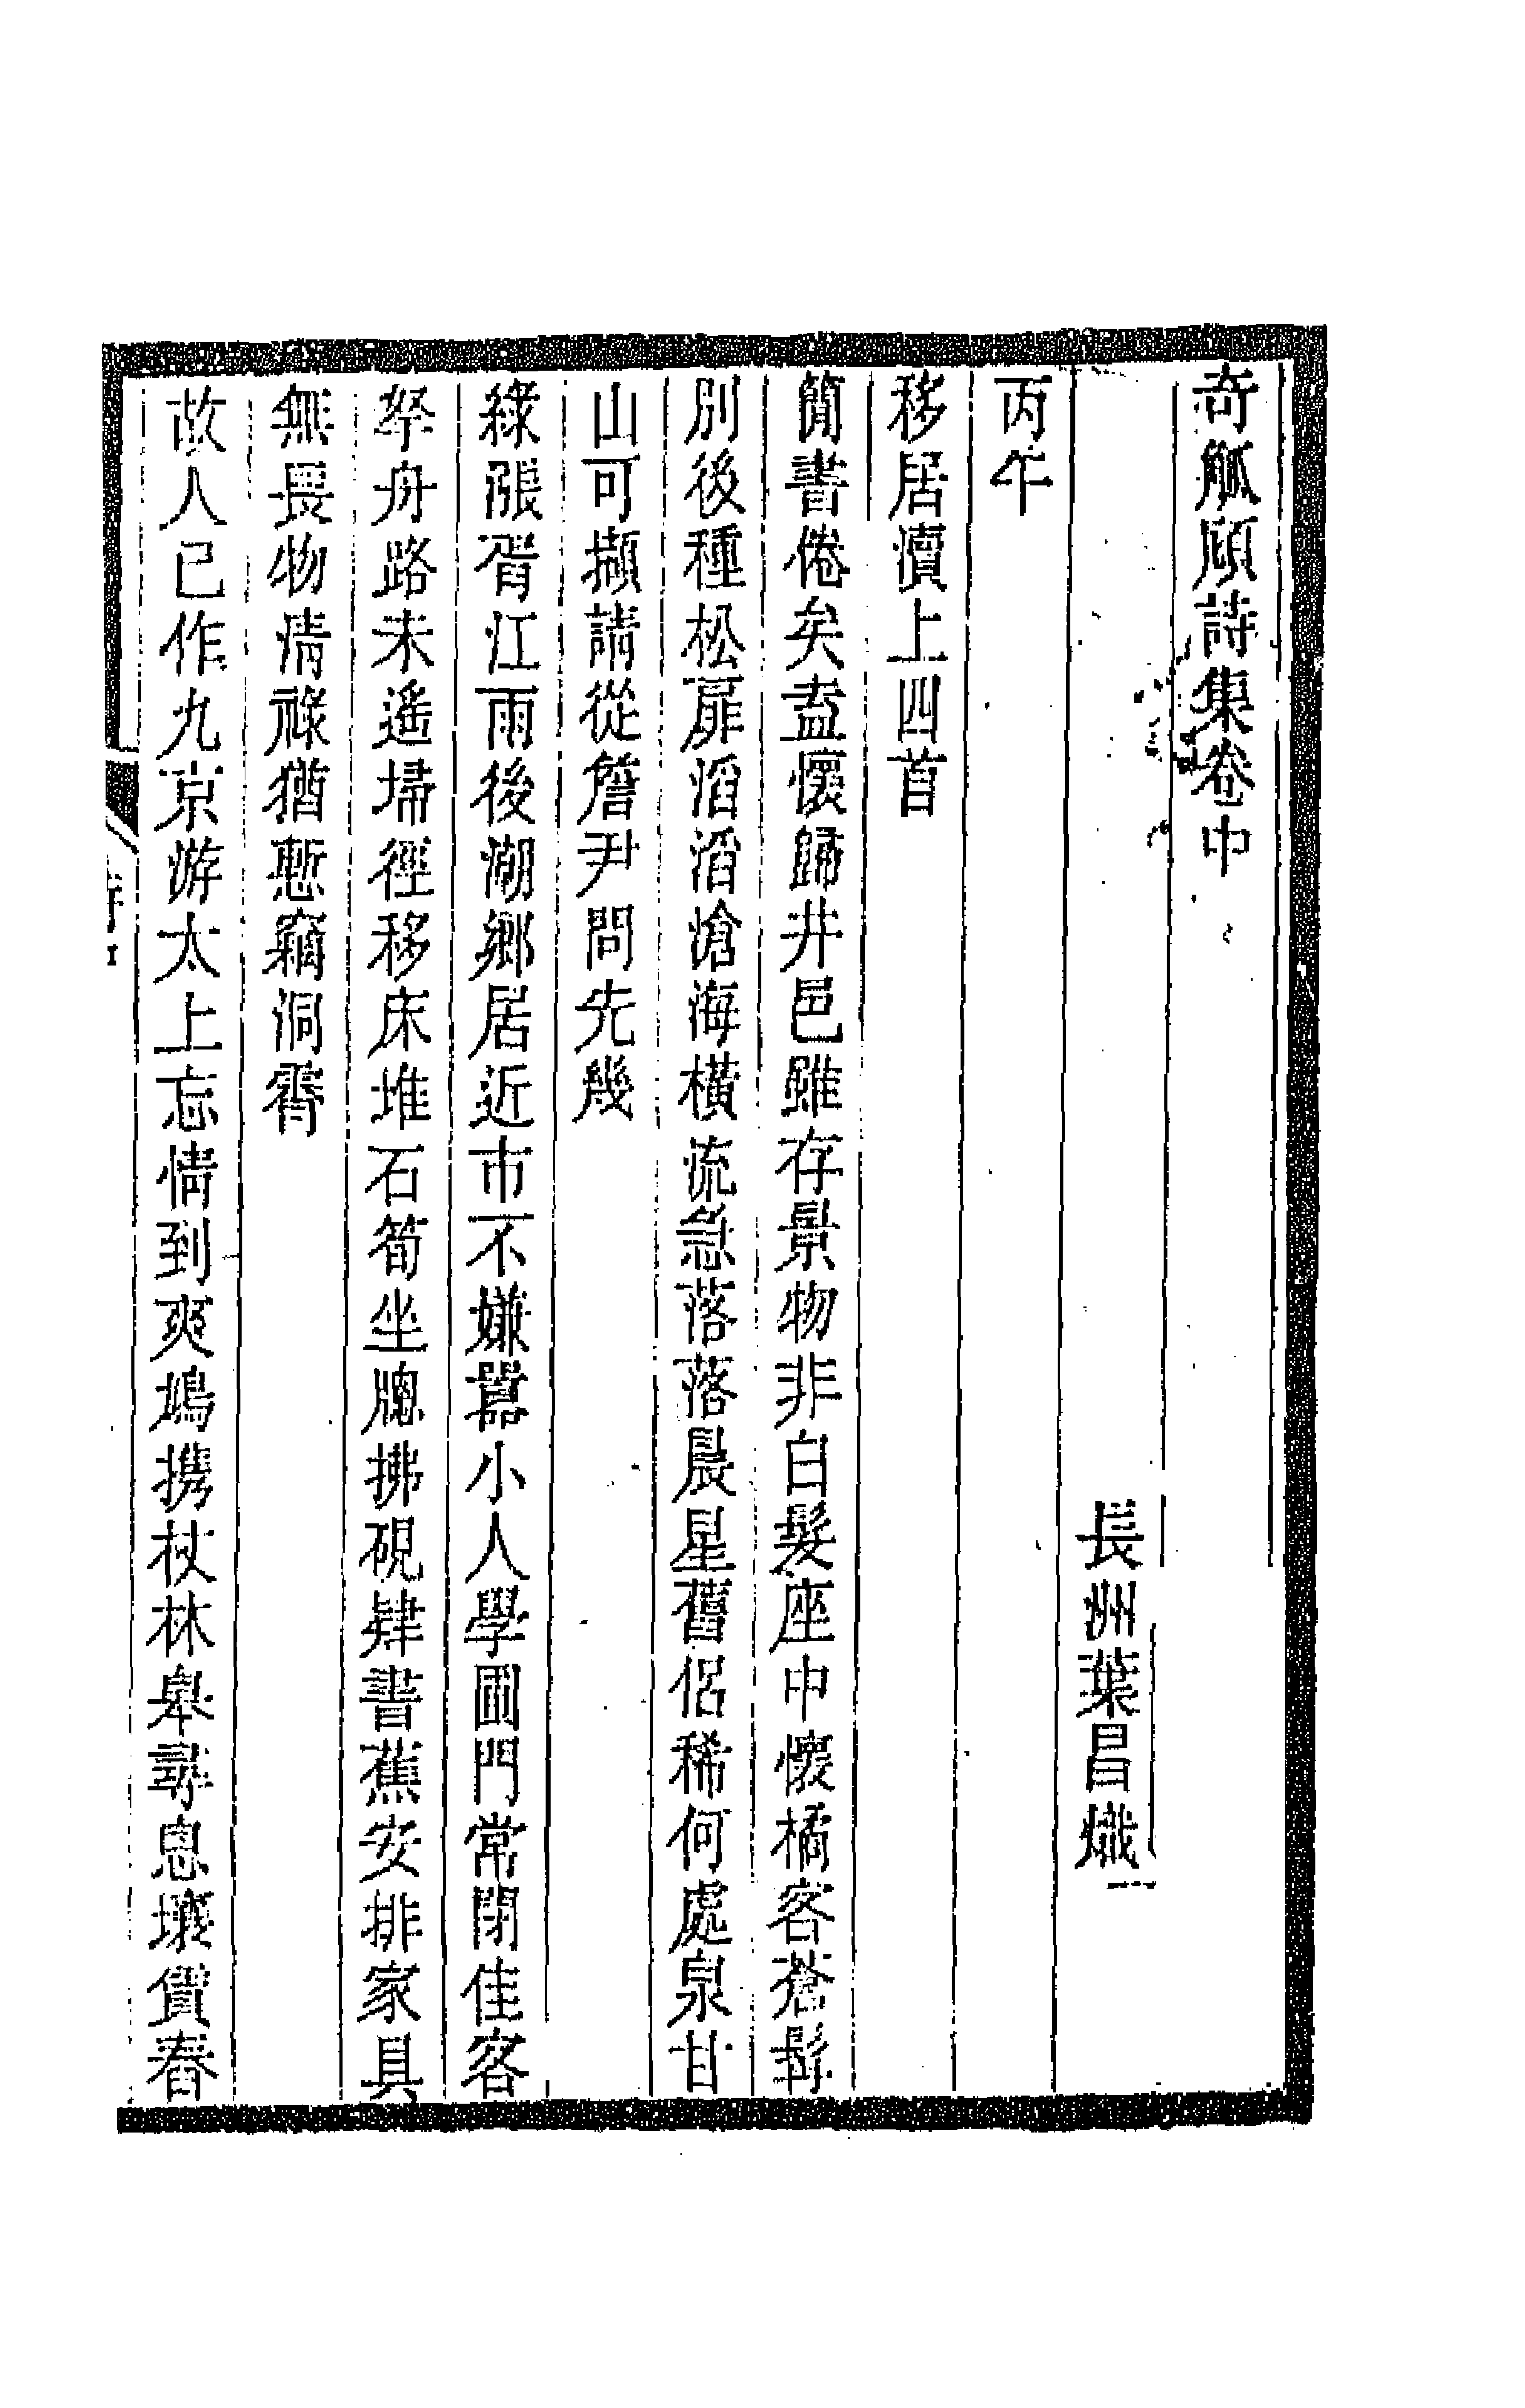 奇觚廎詩集卷中
長洲葉昌熾
丙午
移居瀆上四首
簡書倦矣盍懷歸井邑雖存景物非白髮座中懷橘客蒼髯
別後種松扉滔滔滄海橫流急落落晨星舊侶稀何處泉甘
山可擷請從詹尹問先幾
綠漲胥江雨後潮鄉居近市不嫌囂小人學圃門常閉佳客
拏舟路未遙埽徑移床堆石筍坐牕拂硯肄書蕉安排家具
無長物清祿猶慙竊洞霄
故人已作九京游太上忘情到爽鳩携杖林皋尋息壤賃舂